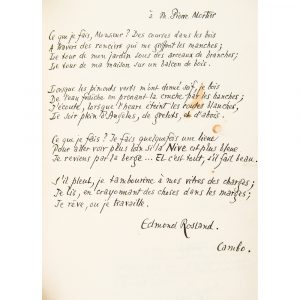 à M. Pierre Mortier
Ce que je fais, Monsieur ? Des courses dans les bois
A travers des ronciers qui me griffent les manches ;
Le tour de mon jardin sous des arceaux de branches ;
Le tour de ma maison sur un balcon de bois.
Lorsque les piments verts m'ont donné soif, je bois
De l'eau fraîche en prenant la cruche par les hanches ;
J'écoute, lorsque l'heure éteint les routes blanches,
Le soir plein d'Angelus, de grelots, et d'abois.
Ce que je fais ? Je fais quelquefois une lieue
Pour aller voir plus loin si la Nive est plus bleue.
Je reviens par la berge... Et c'est tout, s'il fait beau.
S'il pleut, je tambourine à mes vitres des charges ;
Je lis, en crayonnant des choses dans les marges ;
Je rêve, ou je travaille.
Edmond Rostand.
Cambo.